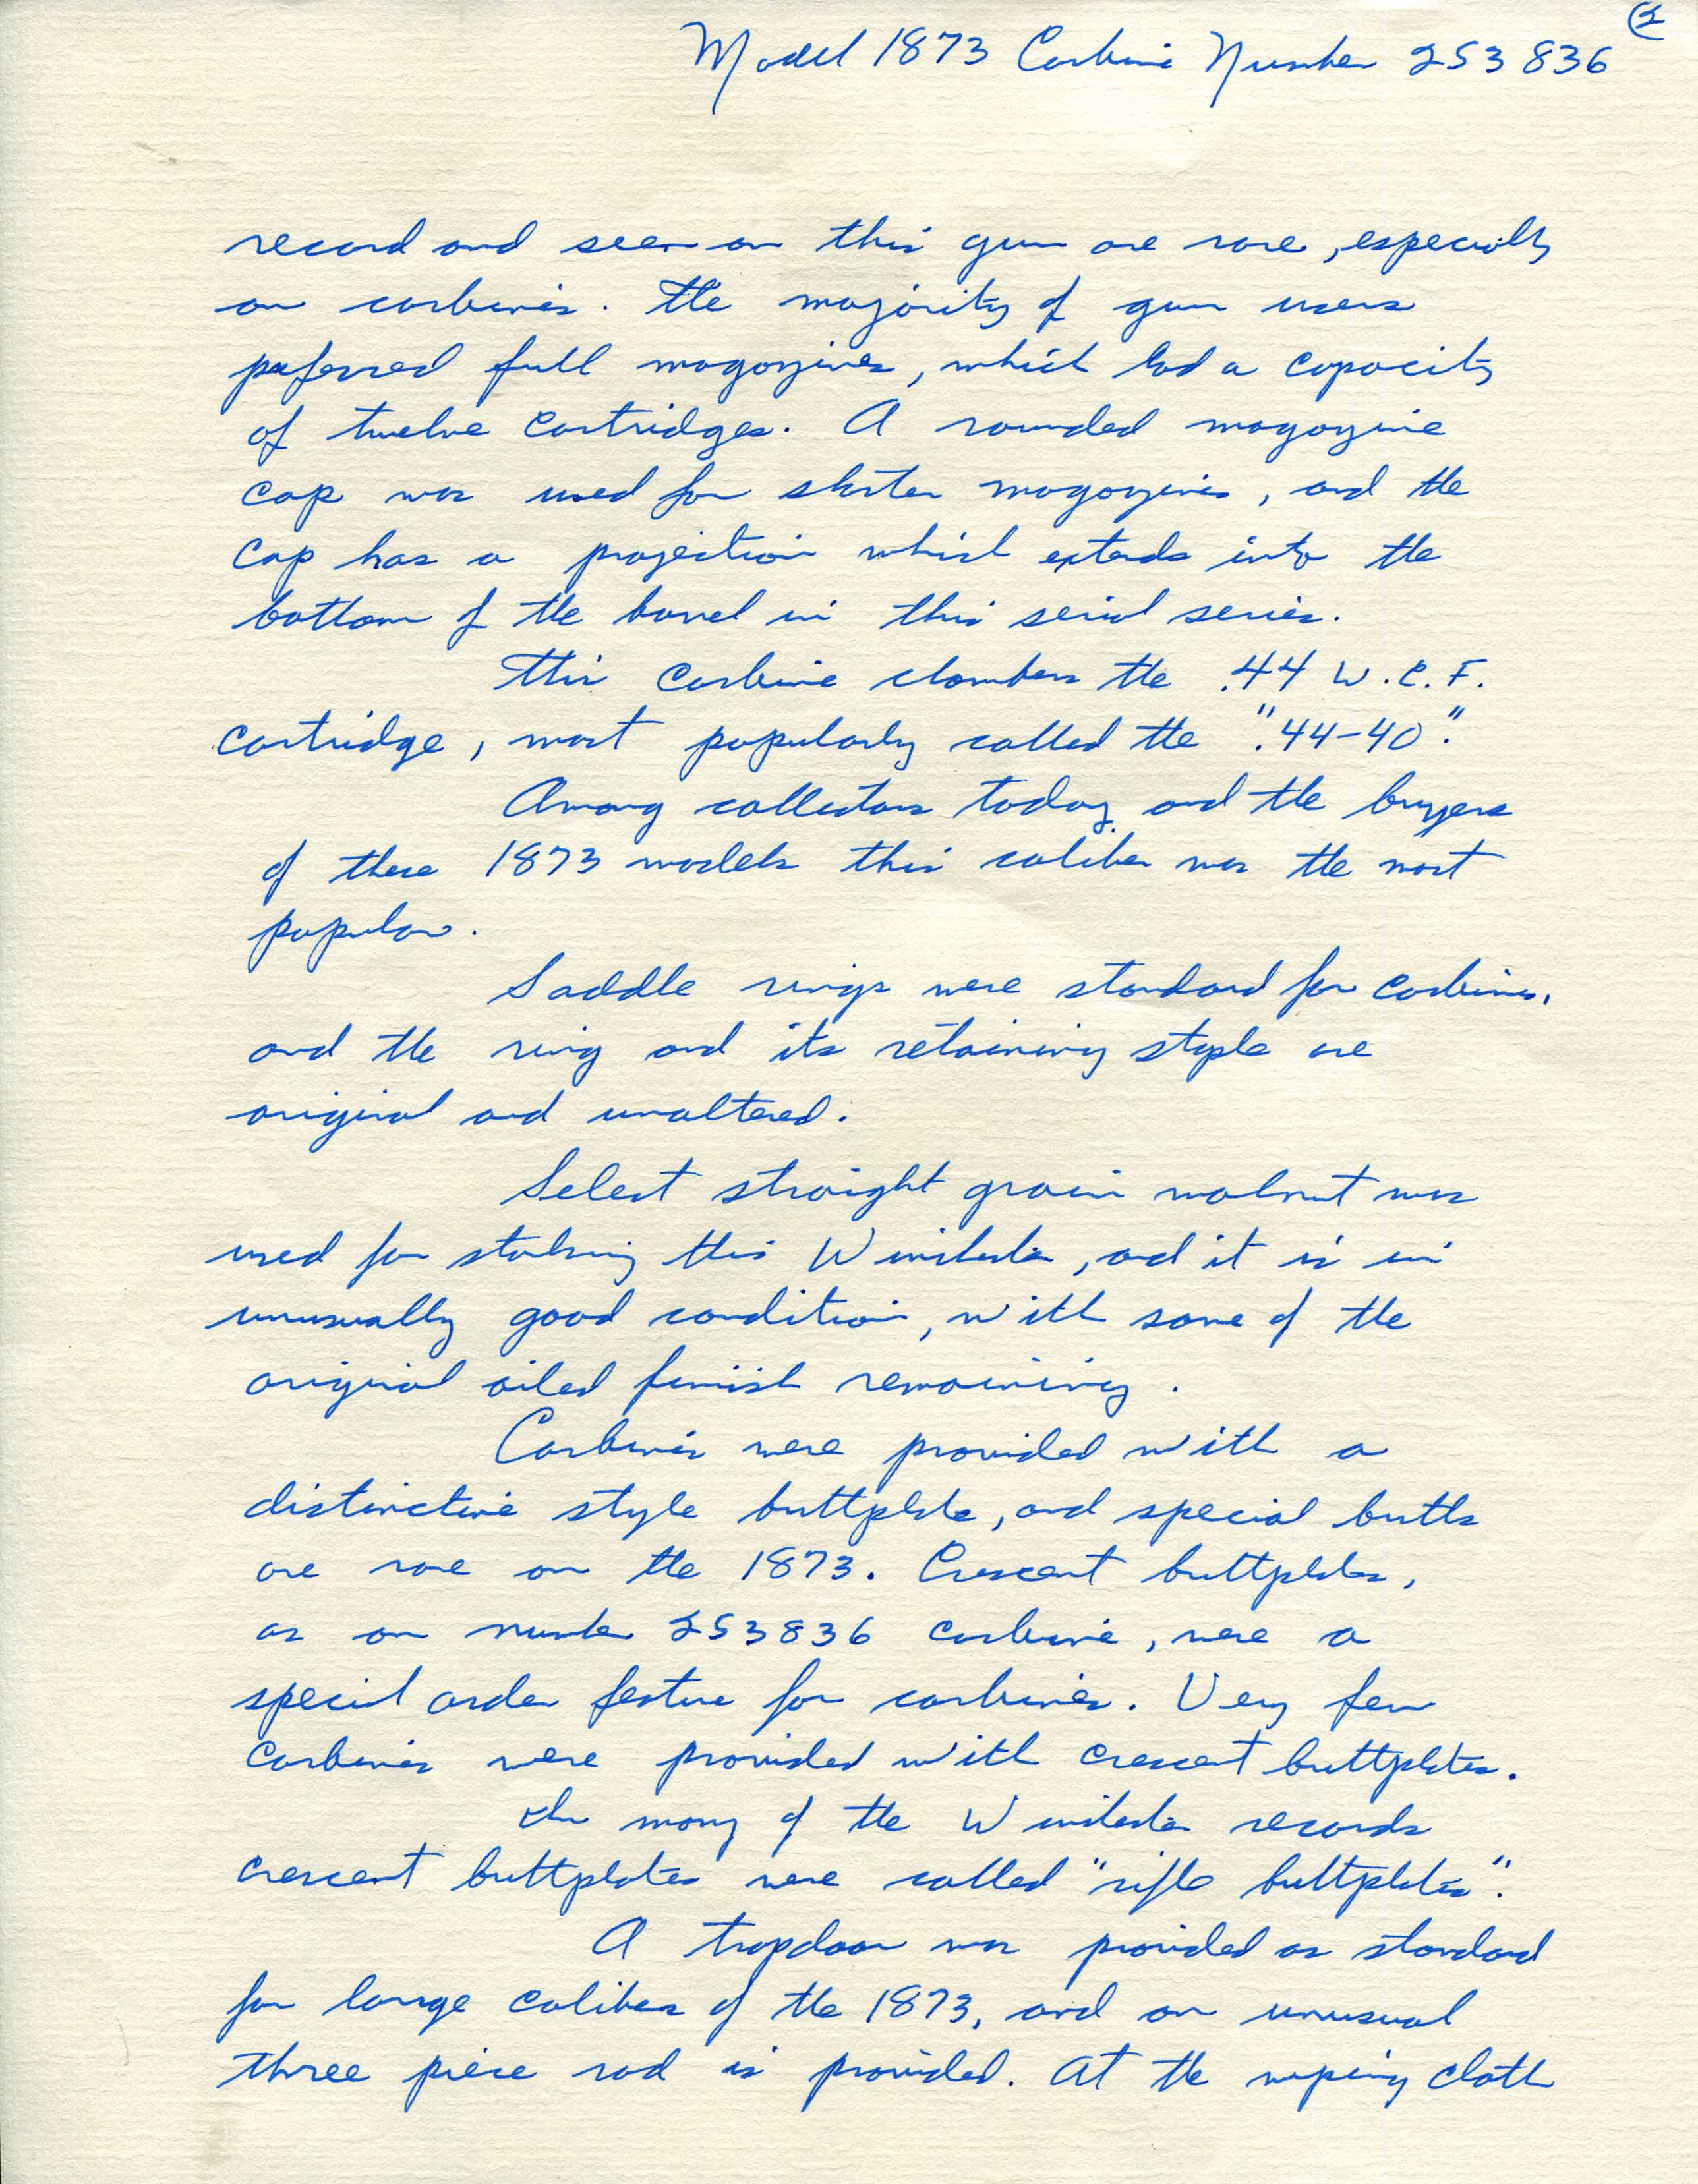 2
Model 1873 Carbine Number 253836
record and seen on this gun are rare, especially
on carbines. The majority of gun users
preferred full magazines, which had a capacity
of twelve cartridges. A rounded magazine
cap was used for shorter magazines, and the
cap has a projection which extends into the
bottom of the barrel in this serial series.
This carbine chambers the .44 W.C.F.
cartridge, most popularly called the ".44-40".
Among collectors today and the buyers
of these 1873 models this caliber was the most
popular.
Saddle rings were standard for carbines,
and the ring and its retaining staple are
original and unaltered.
Select straight grain walnut was
used for stocking this Winchester, and it is in
unusually good condition, with some of the
original oiled finish remaining.
Carbines were provided with a
distinctive style buttplate, and special butts
are rare on the 1873. Crescent buttplates,
as on number 253836 carbine, were a
special order feature for carbines. Very few
carbines were provided with crescent buttplates.
In many of the Winchester records
crescent buttplates were called "rifle buttplates".
A trapdoor was provided as standard
for large calibers of the 1873, and an unusual
three piece rod is provided. At the wiping cloth